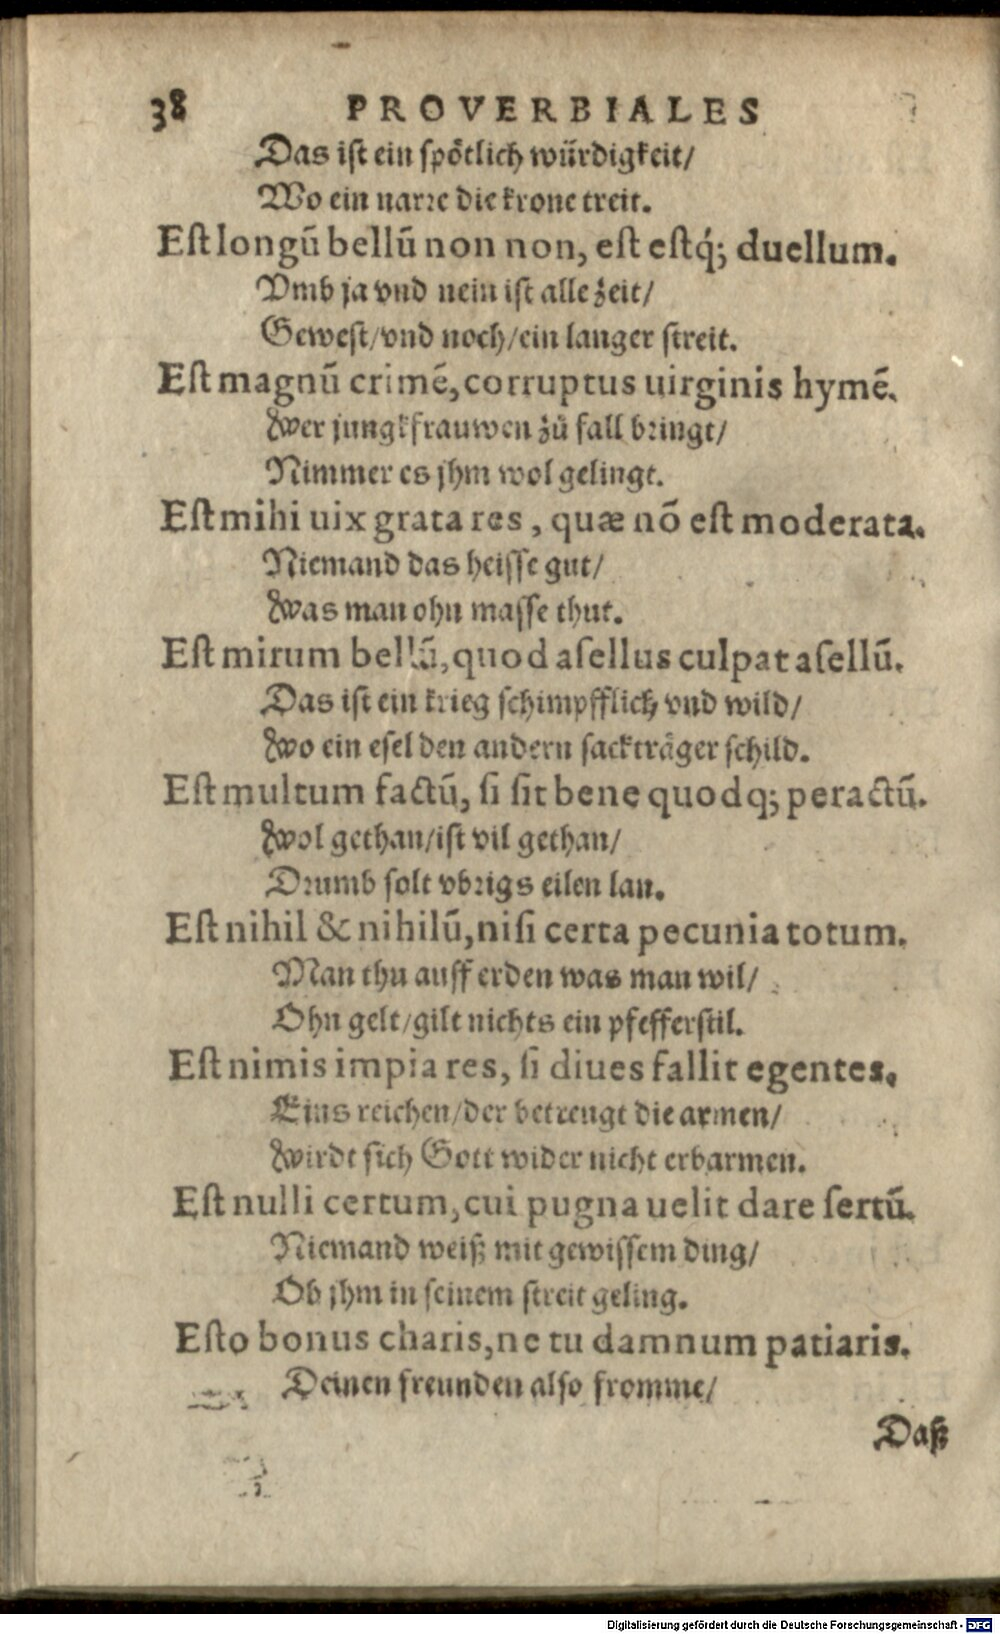 38 PROVERBIALES
Das ist ein spoͤtlich wuͤrdigkeit/
Wo ein narre die krone treit.
Est longū bellū non non, est estq́; duellum.
Vmb ja vnd nein ist alle zeit/
Gewest/vnd noch/ein langer streit.
Est magnū crimē, corruptus uirginis hymē.
Wer jungkfrauwen zů fall bringt/
Nimmer es jhm wol gelingt.
Est mihi uix grata res, quæ nō est moderata.
Niemand das heisse gut/
Was man ohn masse thut.
Est mirum bellū, quod asellus culpat asellū.
Das ist ein krieg schimpfflich vnd wild/
Wo ein esel den andern sacktraͤger schild.
Est multum factū, si sit bene quodq; peractū.
Wol gethan/ist vil gethan/
Drumb solt vbrigs eilen lan.
Est nihil & nihilū, nisi certa pecunia totum.
Man thu auff erden was man wil/
Ohn gelt/gilt nichts ein pfefferstil.
Est nimis impia res, si diues fallit egentes.
Eins reichen/der betreugt die armen/
Wirdt sich Gott wider nicht erbarmen.
Est nulli certum, cui pugna uelit dare sertū.
Niemand weiß mit gewissem ding/
Ob jhm in seinem streit geling.
Esto bonus charis, ne tu damnum patiaris.
Deinen freunden also fromme/
Daß
Digitalisierung gefördert durch die Deutsche Forschungsgemeinschaft - DFG